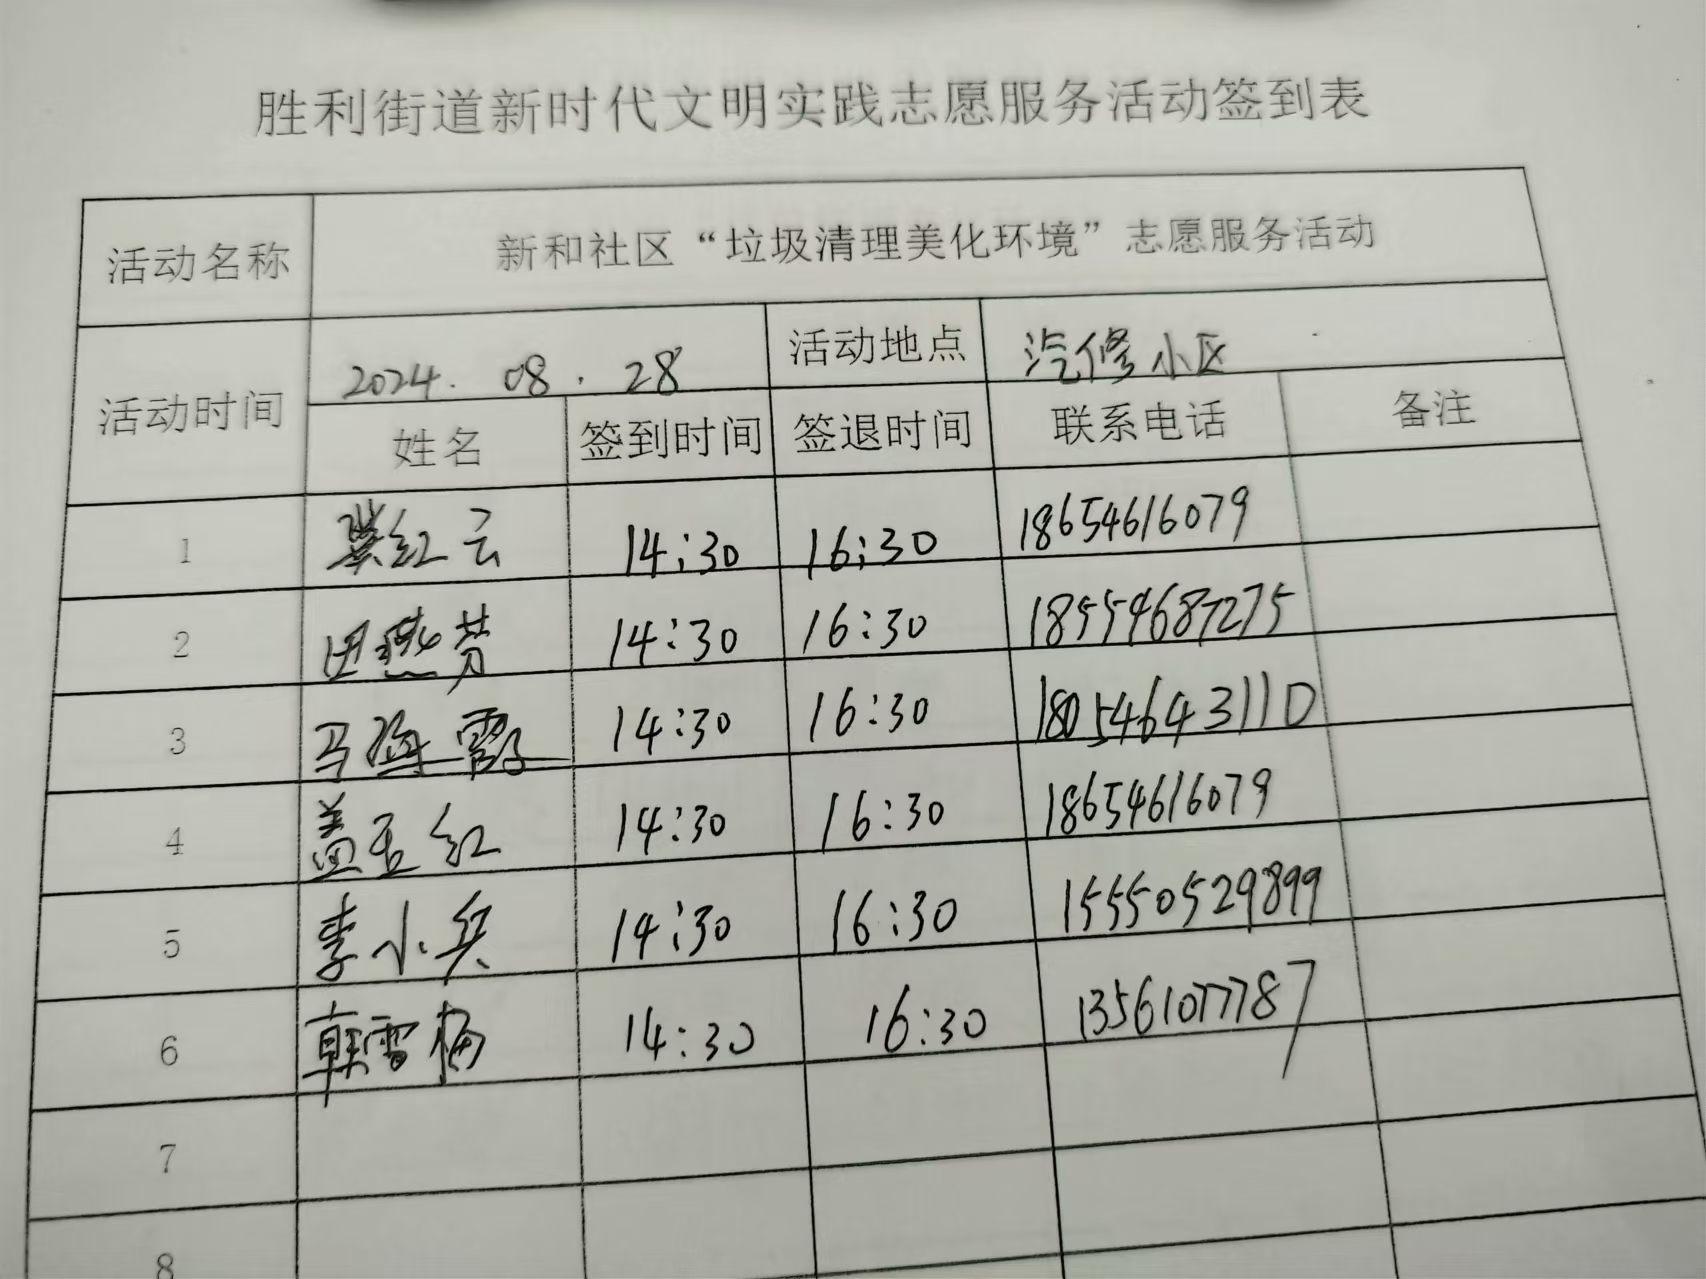 胜利街道新时代文明实践志愿服务活动签到表
活动名称 新和社区“垃圾清理美化环境”志愿服务活动
活动时间 2024.08.28 活动地点 汽修小区
姓名 签到时间 签退时间 联系电话 备注
1 冀红云 14:30 16:30 18654616079
2 田燕芳 14:30 16:30 18554687275
3 马海霞 14:30 16:30 18054643110
4 盖玉红 14:30 16:30 18654616079
5 李小兵 14:30 16:30 15550529899
6 韩雪梅 14:30 16:30 13561077787
7
8